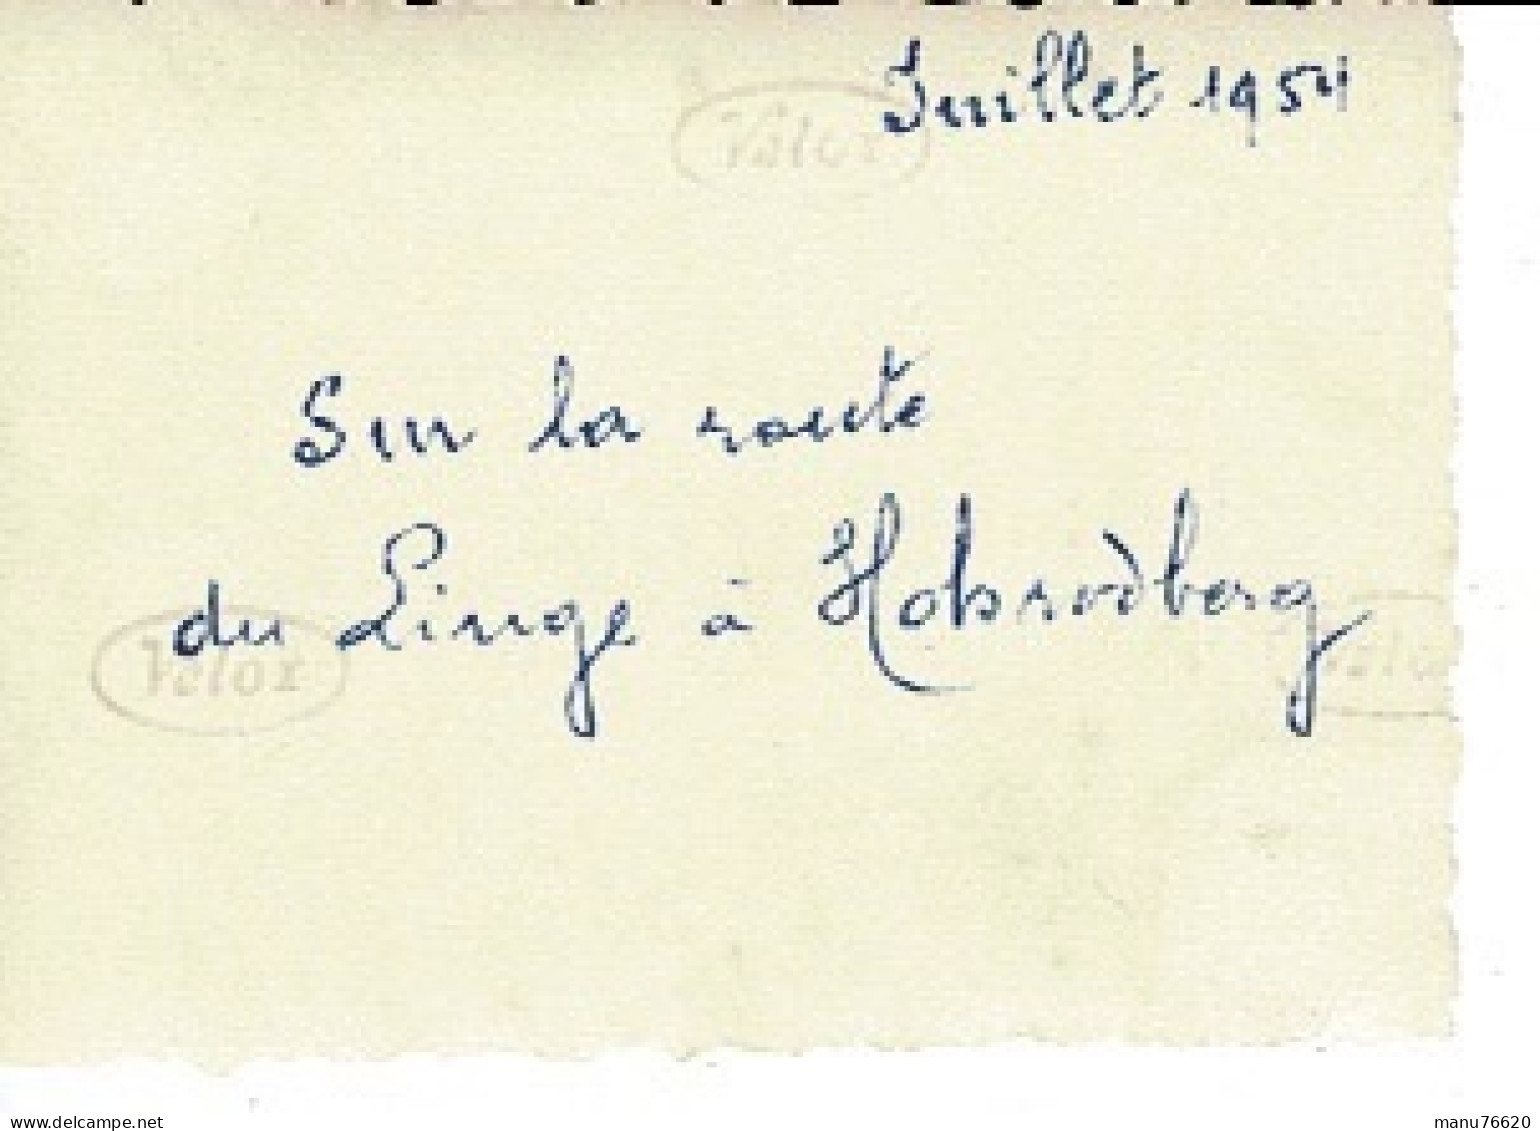 Juillet 1954
Velox
Sur la route
du Linge à Hohrodberg
Velox
delcampe.net
manu76620